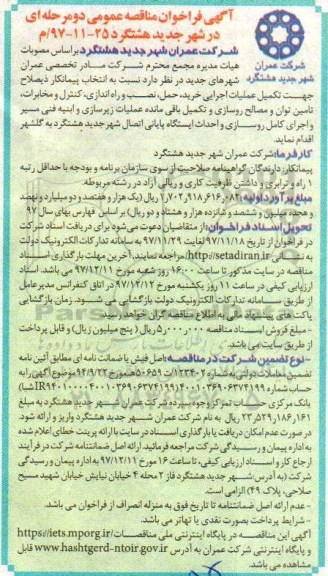 آگهی فراخوان مناقصه عمومی دو مرحله ای
در شهر جدید هشتگرد ۲۵-۱۱-۹۷/م
شرکت عمران
شهر جدید هشتگرد
شرکت عمران شهر جدید هشتگرد براساس مصوبات
هیات مدیره مجمع محترم شرکت مادر تخصصی عمران
شهرهای جدید در نظر دارد نسبت به انتخاب پیمانکار ذیصلاح
جهت تکمیل عملیات اجرایی خرید، حمل، نصب و راه اندازی، کنترل و مخابرات،
تامین توان و مصالح روسازی و تکمیل باقی مانده عملیات زیرسازی و ابنیه فنی مسیر
و اجرای کامل روسازی و احداث ایستگاه پایانی اتصال شهر جدید هشتگرد به گلشهر
اقدام نماید.
کارفرما: شرکت عمران شهر جدید هشتگرد
پیمانکار: دارندگان گواهینامه صلاحیت از سوی سازمان برنامه و بودجه با حداقل رتبه
۱ راه و ترابری و داشتن ظرفیت کاری و ریالی آزاد در رشته مربوطه.
مبلغ برآورد اولیه: ۱,۷۰۲,۹۱۸,۶۱۶,۰۸۲ ریال (یک هزار و هفتصد و دو میلیارد و نهصد
و هجده میلیون و ششصد و شانزده هزار و هشتاد و دو ریال) بر اساس فهارس بهای سال ۹۷
تحویل اسناد فراخوان: از متقاضیان دعوت می‌شود برای دریافت اسناد شرکت
در فراخوان از تاریخ ۹۷/۱۱/۱۸ لغایت ۹۷/۱۱/۲۹ به سامانه تدارکات الکترونیک دولت
به نشانی http://setadiran.ir مراجعه نمایند. آخرین مهلت بارگذاری اسناد
مناقصه در سایت مذکور تا ساعت ۱۶:۰۰ روز شنبه مورخ ۹۷/۱۲/۱۱ می باشد. اسناد
ارزیابی کیفی در ساعت ۱۱ روز یکشنبه مورخ ۹۷/۱۲/۱۲ در اتاق کنفرانس مدیرعامل
از طریق سامانه تدارکات الکترونیک دولت بازگشایی می شود. زمان بازگشایی
پاکت های پیشنهاد مالی به اطلاع مناقصه گران خواهد رسید.
- مبلغ فروش اسناد مناقصه ۵,۰۰۰,۰۰۰ ریال (پنج میلیون ریال) و قابل پرداخت
از طریق سایت می باشد.
- نوع تضمین شرکت در مناقصه: اصل فیش یا ضمانت نامه ای مطابق آئین نامه
تضمین معاملات دولتی به شماره ۱۲۳۴۰۲/ت۵۰۶۵۹ه مورخ ۹۴/۹/۲۲ موضوع آگهی/ به
حساب شماره
بانک مرکزی حساب تمرکز وجوه سپرده شرکت عمران شهر جدید هشتگرد به مبلغ
ریال به نام شرکت عمران شهر جدید هشتگرد واریز و ارائه شود.
در صورت عدم امکان دریافت یا بارگذاری اسناد در سایت با ارائه پرینت خطای اعلام شده
به اداره پیمان و رسیدگی شرکت مراجعه فرمائید. ارائه اصل ضمانتنامه شرکت در فرآیند
ارجاع کار و اسناد ارزیابی کیفی، تا ساعت ۱۶ مورخ ۹۷/۱۲/۱۱ به اداره پیمان و رسیدگی
شرکت (به آدرس: شهر جدید هشتگرد فاز ۲ محله ۴ خیابان نیایش خیابان شهید مسیح
صلاحی، پلاک ۴۹) الزامی است.
- عدم ارائه اصل ضمانتنامه تا تاریخ فوق به منزله انصراف از فراخوان می باشد.
- شرایط پرداخت بصورت نقدی یا تهاتر می باشد.
آگهی این مناقصه در پایگاه اینترنتی ملی مناقصات https://iets.mporg.ir/
و پایگاه اینترنتی شرکت عمران به آدرس www.hashtgerd-ntoir.gov.ir قابل
مشاهده می باشد.